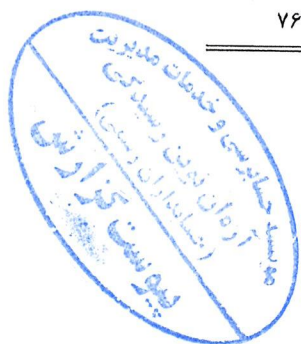 ۷۶
موسسه حسابرسی و خدمات مدیریت
آرمان نوین رسیدگی
(حسابداران رسمی)
پیوست گزارش